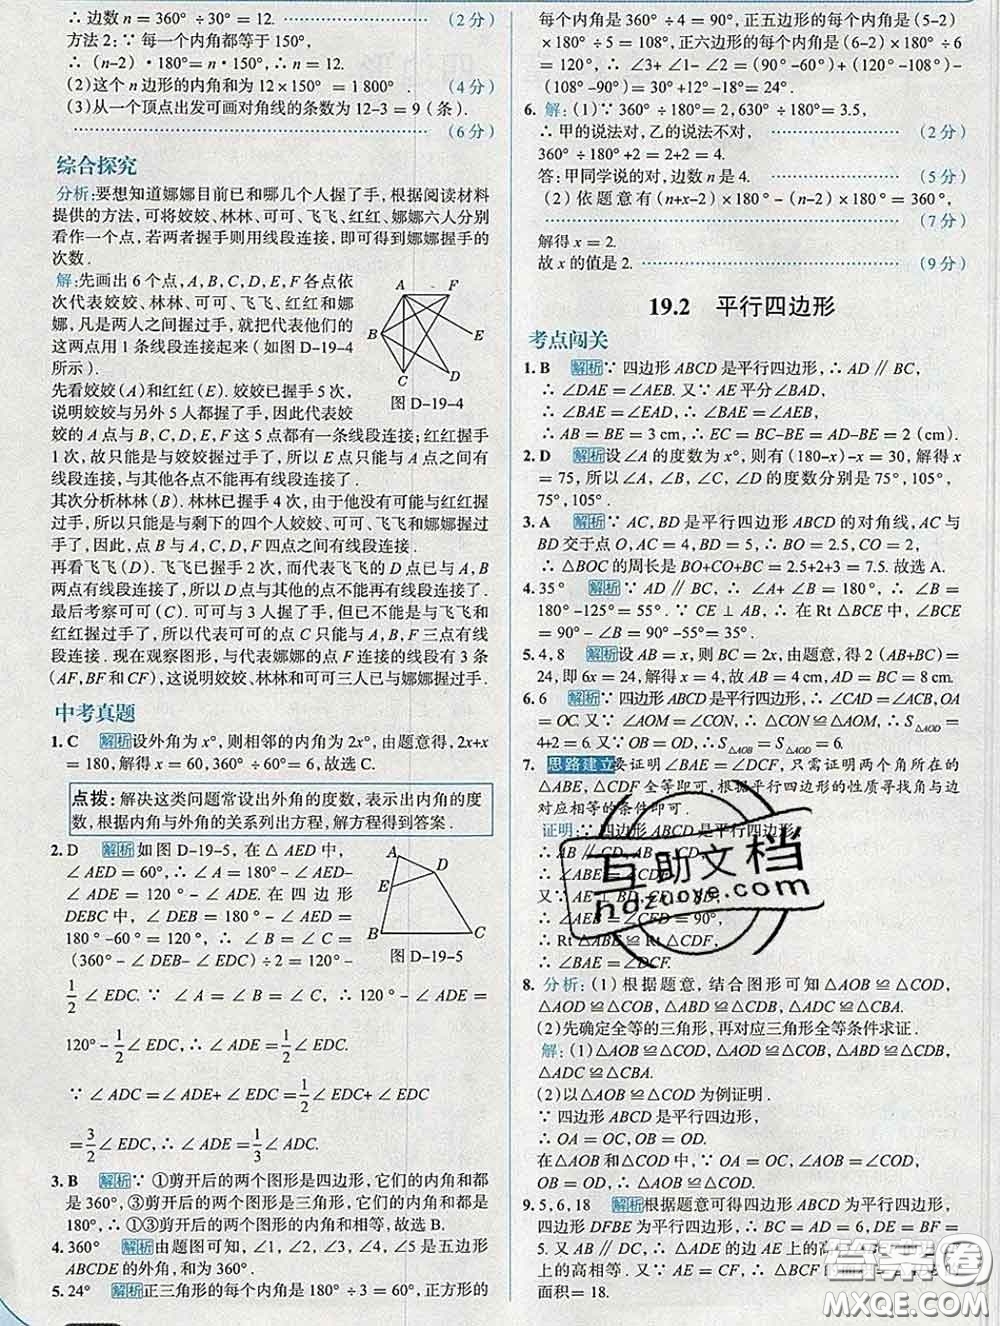 ∴ 边数 n = 360° ÷30° = 12. (2 分)
方法 2:∵ 每一个内角都等于 150°,
∴ (n-2)·180°= n·150°, ∴ n = 12.
(2)这个 n 边形的内角和为 12×150°= 1 800°. (4 分)
(3)从一个顶点出发可画对角线的条数为 12-3 = 9 (条).
(6 分)
综合探究
分析:要想知道娜娜目前已和哪几个人握了手,根据阅读材料
提供的方法,可将姣姣、林林、可可、飞飞、红红、娜娜六人分别
看作一个点,若两者握手则用线段连接,即可得到娜娜握手的
次数.
解:先画出 6 个点,A,B,C,D,E,F 各点依
次代表姣姣、林林、可可、飞飞、红红和娜
娜,凡是两人之间握过手,就把代表他们的
点用 1 条线段连接起来(如图 D-19-4
所示).
先看姣姣(A)和红红(E).姣姣已握手 5 次,
说明姣姣与另外 5 人都握了手,所以代表姣
姣的 A 点与 B,C,D,E,F 这 5 点都有一条线段连接;红红握手
1 次,故只能是与姣姣握了手,所以 E 点只能与 A 点有线段连
接,与其他各点不能再有线段连接.
其次分析林林(B).林林已握手 4 次,由于他没有可能与红红握
手,所以只能是与剩下的四个人姣姣、可可、飞飞和娜娜握过
手了,因此,点 B 与 A,C,D,F 四点之间有线段连接.
再看飞飞(D).飞飞已握手 2 次,而代表飞飞的 D 点已与 A,B
两点有线段连接了,所以 D 点与其他的点不能再有线段连接了.
最后考察可可(C).可可与 3 人握了手,但已不能是与飞飞和
红红握过手了,所以代表可可的点 C 只能与 A,B,F 三点有线
段连接.现在观察图形,与代表娜娜的点 F 连接的线段有 3 条
(AF,BF 和 CF),这说明姣姣、林林和可可三人已与娜娜握手了.
A F
B E
C D
图 D-19-4
中考真题
1. C 解析 设外角为 x°,则相邻的内角为 2x°,由题意得,2x+x
= 180,解得 x = 60,360°÷60°= 6,故选 C.
点拨:解决这类问题常设出外角的度数,表示出内角的度
数,根据内角与外角的关系列出方程,解方程得到答案.
2. D 解析 如图 D-19-5,在 △ AED 中,
∠AED = 60°,∴ ∠A = 180°-∠AED-
∠ADE = 120° - ∠ADE. 在四边形
DEBC 中,∠DEB = 180° - ∠AED =
180° - 60° = 120°,∴ ∠B = ∠C =
(360°-∠DEB-∠EDC) ÷2 = 120°-
1/2 ∠EDC. ∵ ∠A = ∠B = ∠C,∴ 120° - ∠ADE =
120°-1/2 ∠EDC,∴ ∠ADE = 1/2 ∠EDC.
∵ ∠ADC = ∠ADE + ∠EDC = 1/2 ∠EDC + ∠EDC
= 3/2 ∠EDC,∴ ∠ADE = 1/3 ∠ADC.
A
D
E
B C
图 D-19-5
3. B 解析 ∵ ①剪开后的两个图形是四边形,它们的内角和都
是 360°,③剪开后的两个图形是三角形,它们的内角和都是
180°,∴ ①③剪开后的两个图形的内角和相等,故选 B.
4. 360° 解析 由题图可知,∠1,∠2,∠3,∠4,∠5 是五边形
ABCDE 的外角,和为 360°.
5. 24° 解析 正三角形的每个内角是 180° ÷3 = 60°,正方形的
每个内角是 360° ÷4 = 90°,正五边形的每个内角是 (5-2)
×180° ÷5 = 108°,正六边形的每个内角是 (6-2) ×180° ÷6
= 120°,∴ ∠3+∠1-∠2 = (90°-60°)+(120°-108°)-
(108°-90°)= 30°+12°-18°= 24°.
6. 解:(1)∵ 360° ÷180°= 2,630° ÷180°= 3.5,
∴ 甲的说法对,乙的说法不对, (2 分)
360° ÷180°+2 = 2+2 = 4.
答:甲同学说的对,边数 n 是 4. (5 分)
(2) 依题意有 (n+x-2) ×180° -(n-2) ×180° = 360°,
(7 分)
解得 x = 2.
故 x 的值是 2. (9 分)
19.2 平行四边形
考点闯关
1. B 解析 ∵ 四边形 ABCD 是平行四边形,∴ AD ∥ BC,
∴ ∠DAE = ∠AEB. 又∵ AE 平分∠BAD,
∴ ∠BAE = ∠EAD,∴ ∠BAE = ∠AEB,
∴ AB = BE = 3 cm,∴ EC = BC-BE = AD-BE = 2 (cm).
2. D 解析 设∠A 的度数为 x°,则有 (180-x)-x = 30,解得 x
= 75,所以∠A,∠B,∠C,∠D 的度数分别是 75°,105°,
75°,105°.
3. A 解析 ∵ AC,BD 是平行四边形 ABCD 的对角线,AC 与
BD 交于点 O,AC = 4,BD = 5,∴ BO = 2.5,CO = 2,
∴ △BOC 的周长是 BO+CO+BC = 2.5+2+3 = 7.5. 故选 A.
4. 35° 解析 ∵ AD ∥ BC,∴ ∠A+ ∠B = 180°,∴ ∠B =
180°-125°= 55°. ∵ CE ⊥ AB,∴ 在 Rt △BCE 中,∠BCE
= 90° - ∠B = 90° -55°= 35°.
5. 4,8 解析 设 AB = x,则 BC = 2x,由题意,得 2 (AB+BC)=
24,即 6x = 24,解得 x = 4,故 AB = 4 cm,BC = 8 cm.
6. 6 解析 ∵ 四边形 ABCD 是平行四边形,∴ ∠CAD = ∠ACB,OA
= OC. 又∵ ∠AOM = ∠CON,∴ △CON ≌ △AOM,∴ S△AOD =
4+2 = 6. 又∵ OB = OD,∴ S△AOB = S△AOD = 6.
7. 思路建立 要证明 ∠BAE = ∠DCF,只需证明两个角所在的
△ABE,△CDF 全等即可,根据平行四边形的性质寻找角与边
对应相等的条件即可.
证明:∵ 四边形 ABCD 是平行四边形,
∴ AB ∥ CD,AB = CD,
∴
又∵ AE ⊥ BD,
∴ ∠AEB = ∠CFD = 90°,
∴ Rt △ABE ≌ Rt △CDF,
∴ ∠BAE = ∠DCF.
8. 分析:(1) 根据题意,结合图形可知 △AOB ≌ △COD,
△AOD ≌ △COB,△ABD ≌ △CDB,△ADC ≌ △CBA.
(2)先确定全等的三角形,再对应三角形全等条件求证.
解:(1)△AOB ≌ △COD,△AOD ≌ △COB,△ABD ≌ △CDB,
△ADC ≌ △CBA.
(2)以△AOB ≌ △COD 为例证明.
∵ 四边形 ABCD 是平行四边形,
∴ OA = OC,OB = OD.
在△AOB 和△COD 中,∵
∴ △AOB ≌ △COD.
9. 5,6,18 解析 根据题意可得四边形 ABCD 为平行四边形,
四边形 DFBE 为平行四边形,∴ BC = AD = 6,DE = BF =
5. 又∵ AB∥DC,∴ △ADE 的边 AE 上的高
上的高相等. 又∵ AE = CF,∴
面积 = 18.
互助文档
hdzuoye.com
答案圈
MXQE.COM